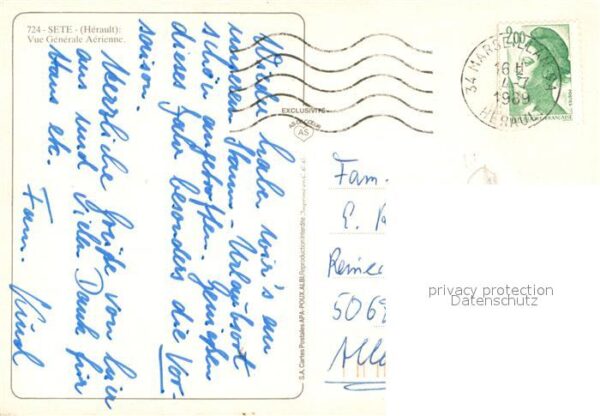 724 - SETE - (Hérault):
Vue Générale Aérienne.
Wieder haben wir's an
unserem Stamm-Urlaubsort
schön angetroffen. Genießen
dieses Jahr besonders die Vor-
saison.
Herzliche Grüße von hier
aus und Vielen Dank für
Fam.
EXCLUSIVITÉ
AS
S.A. Cartes Postales APA-POUX, ALBI, Reproduction Interdite
2,00
34 MARSEILLAN 34
16 H
1989
HERAULT
Fam.
E.
506
Alle
privacy protection
Datenschutz